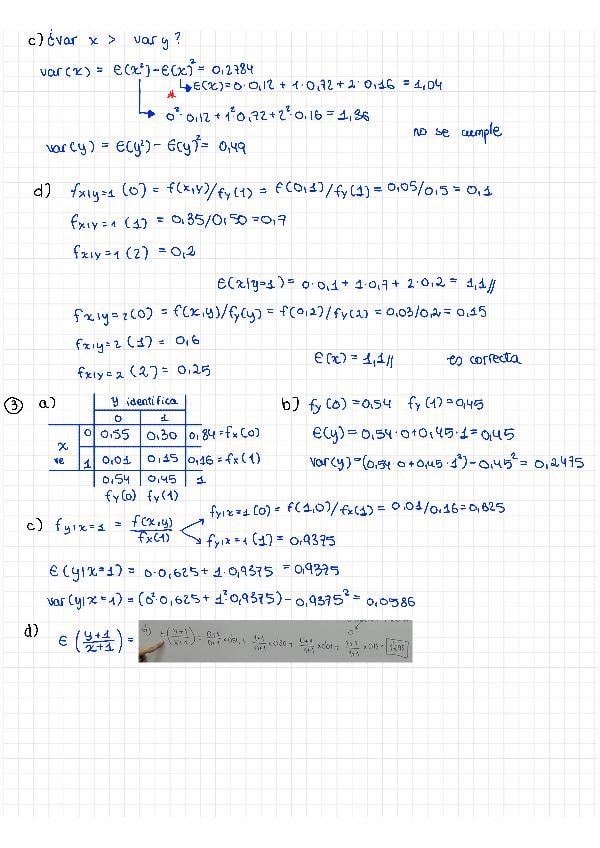 c) ¿var x > var y?
var(x) = E(x²) - E(x)² = 0,2784
E(x) = 0·0,12 + 1·0,72 + 2·0,16 = 1,04
*
0²·0,12 + 1²·0,72 + 2²·0,16 = 1,36
no se cumple
var(y) = E(y²) - E(y)² = 0,49
d) fx|y=1 (0) = f(x,y)/fy(1) = f(0,1)/fy(1) = 0,05/0,5 = 0,1
fx|y=1 (1) = 0,35/0,50 = 0,7
fx|y=1 (2) = 0,2
E(x|y=1) = 0·0,1 + 1·0,7 + 2·0,2 = 1,1//
fx|y=2(0) = f(x,y)/fy(y) = f(0,2)/fy(2) = 0,03/0,2 = 0,15
fx|y=2 (1) = 0,6
fx|y=2 (2) = 0,25
E(x) = 1,1//
es correcta
③ a)
Y identifica
0 1
x 0 0,55 0,30 0,84 = fx(0)
ve 1 0,01 0,15 0,16 = fx(1)
0,54 0,45 1
fy(0) fy(1)
b) fy(0) = 0,54 fy(1) = 0,45
E(y) = 0,54·0 + 0,45·1 = 0,45
var(y) = (0,54·0 + 0,45·1²) - 0,45² = 0,2475
c) fy|x=1 = f(x,y)/fx(1)
fy|x=1 (0) = f(1,0)/fx(1) = 0.01/0,16 = 0,625
fy|x=1 (1) = 0,9375
E(y|x=1) = 0·0,625 + 1·0,9375 = 0,9375
var(y|x=1) = (0²·0,625 + 1²·0,9375) - 0,9375² = 0,0586
d) E(y+1/x+1) =